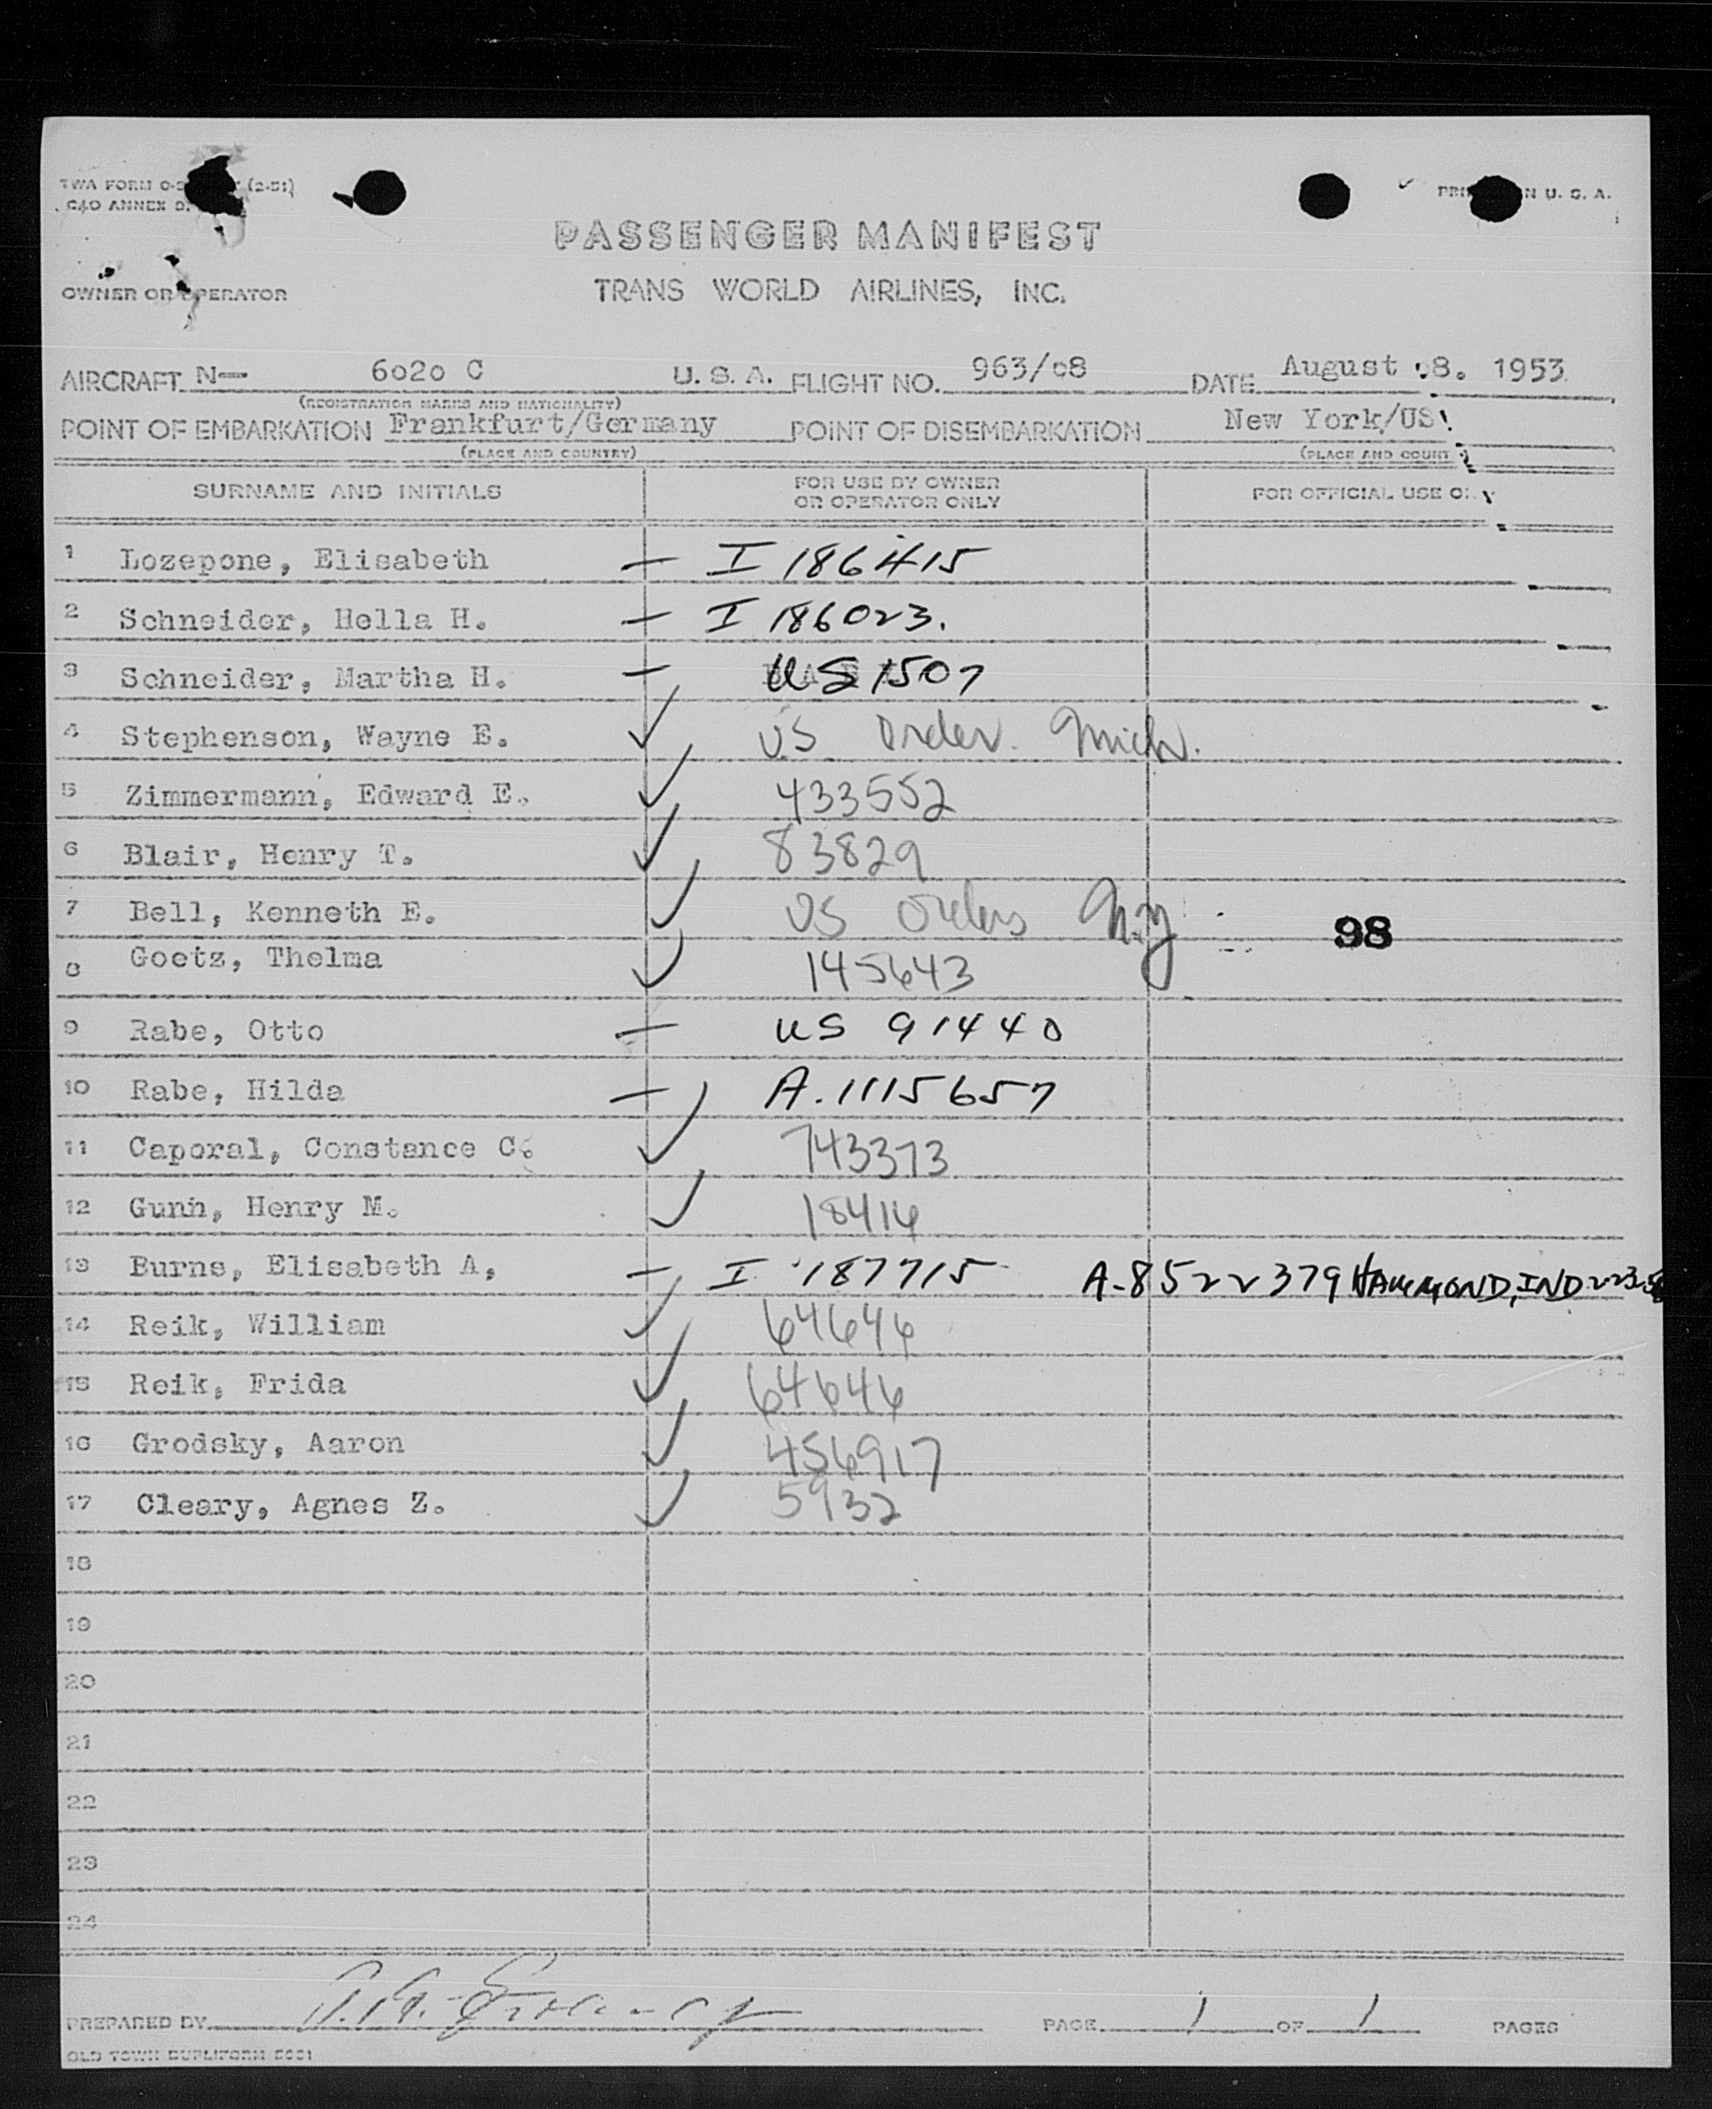 TWA FORM (2-51)
C40 ANNEX
PRINTED IN U. S. A.
PASSENGER MANIFEST
OWNER OR OPERATOR TRANS WORLD AIRLINES, INC.
AIRCRAFT N— 6020 C U. S. A. FLIGHT NO. 963/08 DATE August 08. 1953
(REGISTRATION MARKS AND NATIONALITY)
POINT OF EMBARKATION Frankfurt/Germany POINT OF DISEMBARKATION New York/US
(PLACE AND COUNTRY) (PLACE AND COUNT
SURNAME AND INITIALS FOR USE BY OWNER OR OPERATOR ONLY FOR OFFICIAL USE ONLY
1 Lozepone, Elisabeth — I 186415
2 Schneider, Hella H. — I 186023.
3 Schneider, Martha H. — US 1507
4 Stephenson, Wayne E. ✓ US Order. Mich.
5 Zimmermann, Edward E. ✓ 433552
6 Blair, Henry T. ✓ 83829
7 Bell, Kenneth E. ✓ US Orders N.Y 98
8 Goetz, Thelma ✓ 145643
9 Rabe, Otto — US 91440
10 Rabe, Hilda — A.1115657
11 Caporal, Constance C. ✓ 743373
12 Gunn, Henry M. ✓ 18414
13 Burns, Elisabeth A, — I 187715 A-8522379 HAMMOND, IND
14 Reik, William ✓ 64646
15 Reik, Frida ✓ 64646
16 Grodsky, Aaron ✓ 456917
17 Cleary, Agnes Z. ✓ 5932
18
19
20
21
22
23
24
PREPARED BY PAGE 1 OF 1 PAGES
OLD TOWN DUPLIFORM